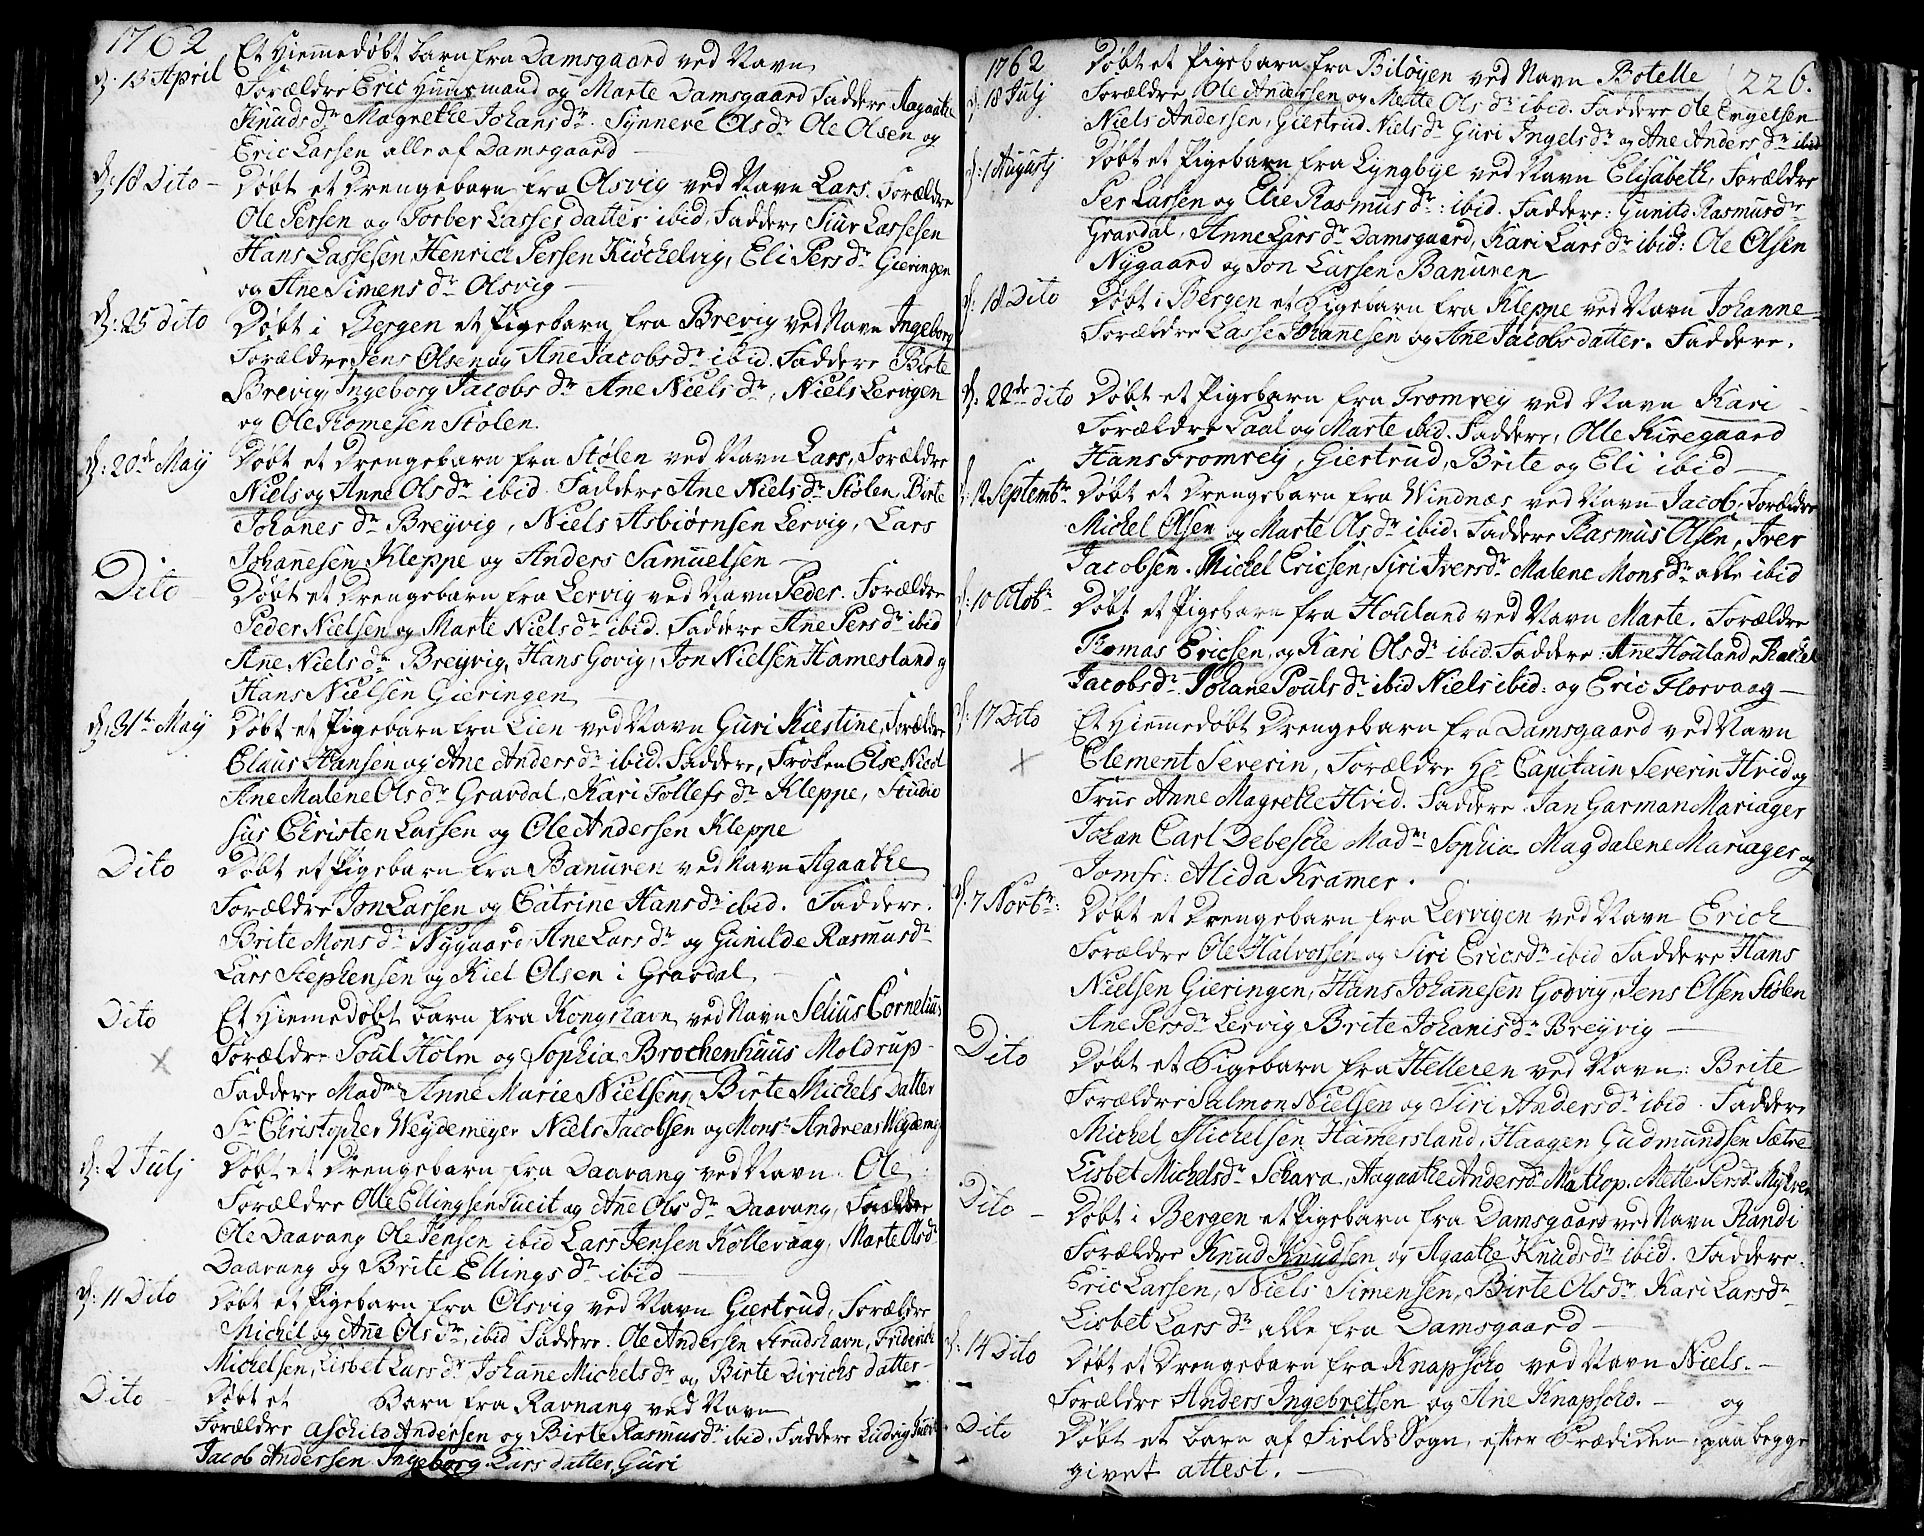 1762
d: 13 April Et Hiemmedøbt barn fra Damsgaard ved Navn
Forældre Eric Huusmand og Marte Damsgaard Faddere Aagaathe
Knuds dr Magrethe Johans dr. Synneve Ols dr Ole Olsen og
Eric Larsen alle af Damsgaard
d: 18 Dito Døbt et Drengebarn fra Olsvig ved Navn Lars. Forældre
Ole Persen og Torber Lasses datter ibid. Faddere Siur Lassesen
Hans Lassesen, Henrich Persen Kiöchelvig, Eli Pers dr Gieringen
og Ane Simens dr Olsvig
d: 25 dito Døbt i Bergen et Pigebarn fra Brevig ved Navn Ingeborg
Forældre Jens Olsen og Ane Jacobs dr ibid. Faddere Birte
Brevig, Ingeborg Jacobs dr Ane Niels dr, Niels Lervigen
og Ole Tomesen Stolen.
d: 20de Maij Døbt et Drengebarn fra Stölen ved Navn Lars, Forældre
Niels og Anne Ols dr ibid. Faddere Ane Niels dr Stölen, Birte
Johanes dr Breyvig, Niels Asbiørnsen Lervig, Lars
Johanesen Kleppe og Anders Samuelsen
Dito Døbt et Drengebarn fra Lervig ved Navn Peder. Forældre
Peder Nielsen og Marte Niels dr ibid. Faddere Ane Pers dr ibid
Ane Niels dr Breyvig, Hans Govig, Jon Nielsen Hamesland og
Hans Nielsen Gieringen
d: 31te Maij Døbt et Pigebarn fra Lien ved Navn Guri Kiestine, Forældre
Claus Hansen og Ane Anders dr ibid. Faddere, Frøken Else Nicol
Ane Malene Ols dr Gravdal, Kari Tollefs dr Kleppe, Studio
sus Christen Larsen og Ole Andersen Kleppe
Dito Døbt et Pigebarn fra Banuren ved Navn Agaathe
Forældre Jon Larsen og Catrine Hans dr ibid. Faddere.
Brite Mons dr Nygaard Ane Lars dr og Gunilde Rasmus dr
Lars Stephensen og Kiel Olsen i Gravdal
Dito Et Hiemmedøbt barn fra Kongshavn ved Navn Selius Cornelius
Forældre Poul Holm og Sophia Brochenhuus Moldrup
Faddere Madme Anne Marie Nielsens, Birte Michels Datter
Sr Christopher Weydemeyer Niels Jacobsen og Monsr Andreas Weydemey
d: 2 Julj Døbt et Drengebarn fra Daavang ved Navn Ole
Forældre Olle Ellingsen Tueit og Ane Ols dr Daavang, Faddere
Ole Daavang Ole Jensen ibid Lars Jensen Koltevaag, Marte Ols dr
Daavang og Brite Ellings dr ibid
d: 11 Dito Døbt et Pigebarn fra Olsvig ved Navn Giertrud, Forældre
Michel og Ane Ols dr ibid Faddere. Ole Andersen Strudshavn, Friderich
Michelsen, Lisbet Lars dr Johane Michels dr og Birte Dirichs datter
Dito Døbt et Barn fra Ravnang ved Navn
Forældre Aschild Andersen og Birte Rasmus dr ibid. Faddere Ludvig
Jacob Andersen Ingeborg Lars datter, Guri
1762 226.
d: 18 Julj Døbt et Pigebarn fra Biløyen ved Navn Botelle
Forældre Ole Anderssen og Mette Ols dr ibid. Faddere Ole Engelsen
Niels Andersen, Giertrud Niels dr Guri Ingels dr og Ane Anders dr ibid
d: 1 Augustj Døbt et Pigebarn fra Lyngbye ved Navn Elisabeth, Forældre
Per Larsen og Elie Rasmus dr: ibid. Faddere: Gunild Rasmus dr
Gravdal, Anne Lars dr Damsgaard, Kari Lars dr ibid: Ole Olsen
Nygaard og Jon Larsen Banuren
d: 18 Dito Døbt i Bergen et Pigebarn fra Kleppe ved Navn Johanne
Forældre Lasse Johanesen og Ane Jacobs datter. Faddere.
d: 22de dito Døbt et Pigebarn fra Fromrey ved Navn Kari
Forældre Paal og Marte ibid. Faddere, Olle Kiregaard
Hans Fromreij, Giertrud, Brite og Eli ibid
d: 12 Septembr Døbt et Drengebarn fra Windnæs ved Navn Jacob, Forældre
Michel Olsen og Marte Ols dr ibid. Faddere Rasmus Olsen, Iver
Jacobsen. Michel Ericsen, Siri Ivers dr Malene Mons dr alle ibid
d: 10 Octobr Døbt et Pigebarn fra Houland ved Navn Marte. Forældre
Thomas Ericsen, og Kari Ols dr ibid. Faddere. Ane Houland, Rachel
Jacobs dr. Johane Pouls dr ibid Niels ibid: og Eric Florvaag
d: 17 Dito Et Hiemmedøbt Drengebarn fra Damsgaard ved Navn
Clement Severin, Forældre Hr Capitain Severin Hvid og
Frue Anne Magrethe Hvid. Faddere. Jan Garman Mariager
Johan Carl Debesche Madme Sophia Magdalene Mariager og
Jomfr: Alida Kramer.
d: 7 Novbr: Døbt et Drengebarn fra Lervigen ved Navn Erich
Forældre Ole Halvorsen og Siri Erics dr ibid Faddere Hans
Nielsen Gieringen, Hans Johanesen Godvig, Jens Olsen Stølen
Ane Pers dr Lervig Brite Johanis dr Breyvig
Dito Døbt et Pigebarn fra Helleren ved Navn: Brite
Forældre Salmon Nielsen og Siri Anders dr ibid. Faddere
Michel Michelsen Hamersland, Haagen Gudmundsen Sætre
Lisbet Michels dr Schara, Aagaathe Anders dr Mathop, Mette Pers dr
Dito Døbt i Bergen et Pigebarn fra Damsgaard ved Navn Randi
Forældre Knud Knudsen og Agaathe Knuds dr ibid. Faddere.
Eric Larsen, Niels Simensen, Birte Ols dr Kari Lars dr
Lisbet Lars dr alle fra Damsgaard
d: 14 Dito Døbt et Drengebarn fra Knapscho ved Navn Niels.
Forældre Anders Ingebretsen og Ane Knapscho. og
Dito Døbt et barn af Fields Sogn, efter Prædichen, paa begge
givet attest.